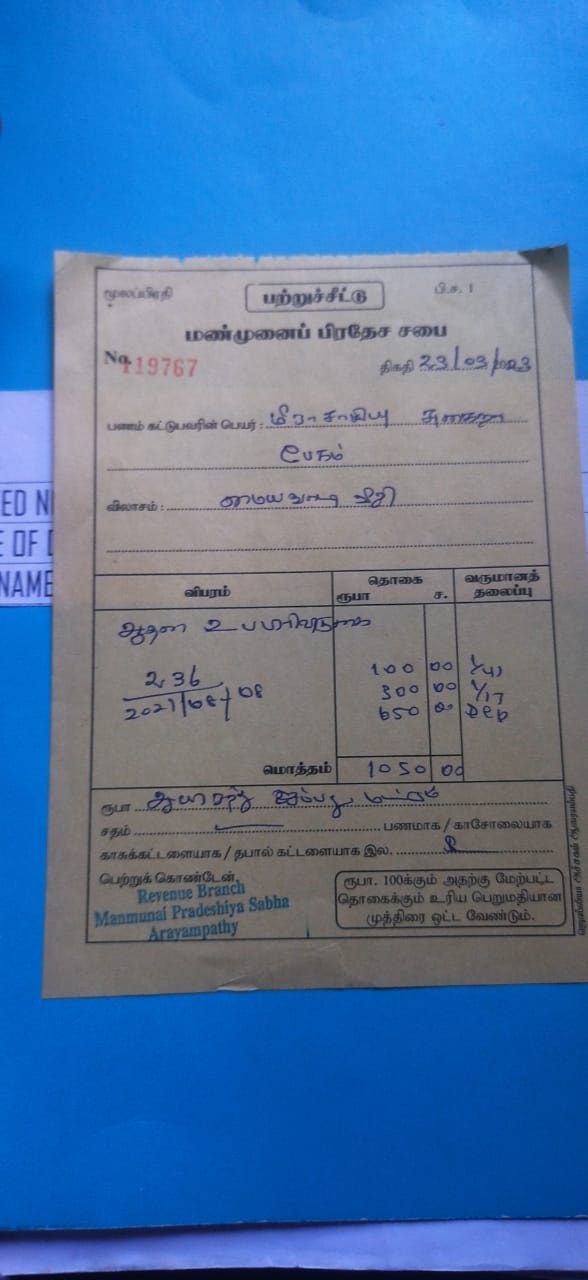 மூலப்பிரதி
பற்றுச்சீட்டு
பி.ச. 1
மண்முனைப் பிரதேச சபை
No. 119767
திகதி 23/03/2023
பணம் கட்டுபவரின் பெயர் : மீராசாகிபு
பேகம்
விலாசம் : மையவாடி வீதி
விபரம்
தொகை
ரூபா ச.
வருமானத் தலைப்பு
ஆதன
236
2021/08/08
100 00 1/41
300 00 1/17
650 00 Dep
மொத்தம் 1050 00
ரூபா ஆயிரத்து ஐம்பது மட்டும்
சதம் பணமாக / காசோலையாக
காசுக்கட்டளையாக / தபால் கட்டளையாக இல.
பெற்றுக் கொண்டேன்.
Revenue Branch
Manmunai Pradeshiya Sabha
Arayampathy
ரூபா. 100க்கும் அதற்கு மேற்பட்ட
தொகைக்கும் உரிய பெறுமதியான
முத்திரை ஒட்ட வேண்டும்.
ED N
E OF
NAME